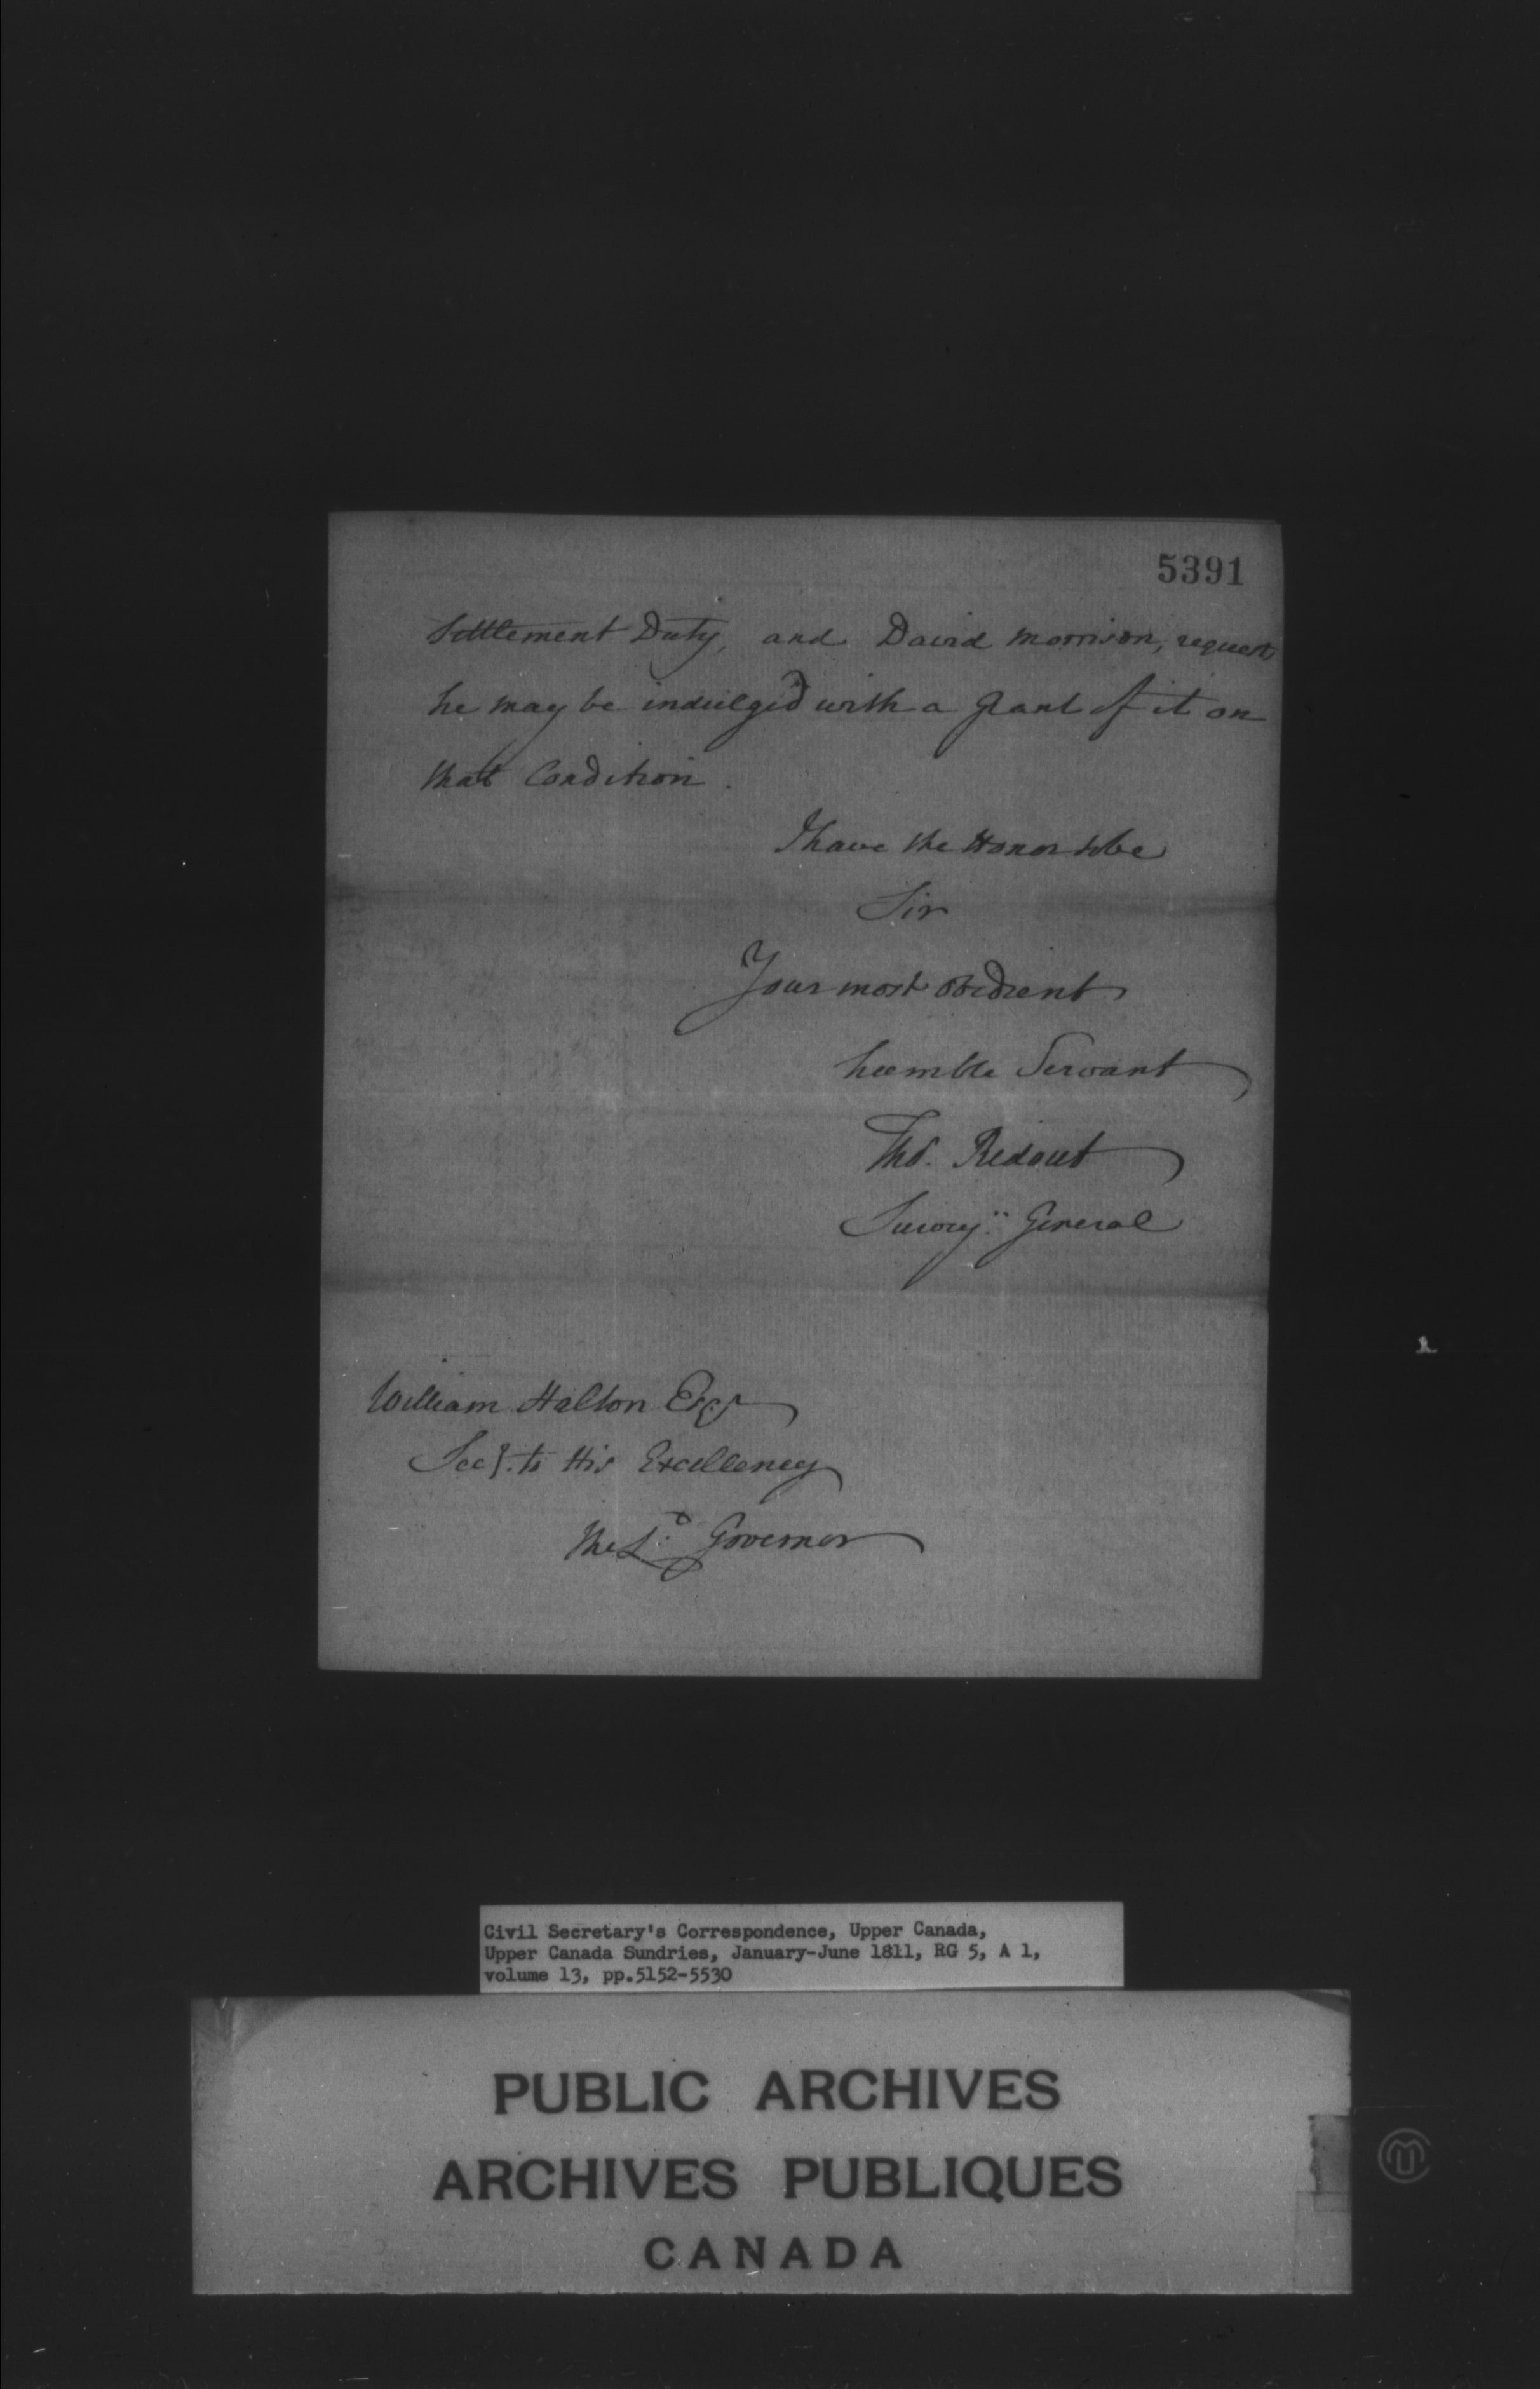 5391
Settlement Duty, and David Morrison, requests
he may be indulged with a Grant of it on
that Condition.
I have the Honor to be
Sir
Your most obedient
humble Servant
Thos. Ridout
Survey.r General
William Halton Esqr
Secy. to His Excellency
the Lt. Governor
Civil Secretary's Correspondence, Upper Canada,
Upper Canada Sundries, January-June 1811, RG 5, A 1,
volume 13, pp.5152-5530
PUBLIC ARCHIVES
ARCHIVES PUBLIQUES
CANADA